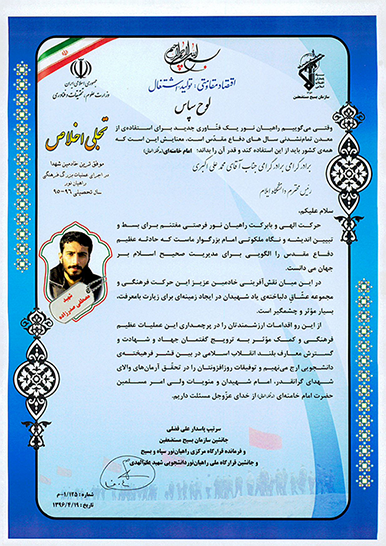 جمهوری اسلامی ایران
وزارت علوم، تحقیقات و فناوری
اقتصاد مقاومتی؛ تولید، اشتغال
سازمان بسیج مستضعفین
لوح سپاس
تجلی اخلاص
موفق ترین خادمین شهدا
در اجرای عملیات بزرگ فرهنگی
راهیان نور
سال تحصیلی ۹۶-۹۵
وقتی می‌گوییم راهیان نور یک فنّاوری جدید برای استفاده‌ی از
معدن تمام‌نشدنی سال های دفاع مقدس است، معنایش این است که
همه‌ی کشور باید از این استفاده کند و قدر آن را بداند؛ امام خامنه‌ای
برادر گرامی جناب آقای محمد علی اکبری
رئیس محترم دانشگاه ایلام
سلام علیکم،
حرکت الهی و بابرکت راهیان نور فرصتی مغتنم برای بسط و
تبیین اندیشه و نگاه ملکوتی امام بزرگوار ماست که حادثه عظیم
دفاع مقدس را الگویی برای مدیریت صحیح اسلام بر
جهان می دانست.
در این میان نقش‌آفرینی خادمین عزیز این حرکت فرهنگی و
مجموعه عشّاق دلباخته‌ی یاد شهیدان در ایجاد زمینه‌ای برای زیارت بامعرفت،
بسیار مؤثر و چشمگیر است.
از این رو اقدامات ارزشمندتان را در پرچمداری این عملیات عظیم
فرهنگی و کمک مؤثر به ترویج گفتمان جهاد و شهادت و
گسترش معارف بلند انقلاب اسلامی در بین قشر فرهیخته‌ی
دانشجویی ارج می‌نهیم و توفیقات روزافزونتان را در تحقّق آرمان‌های والای
شهدای گرانقدر، امام شهیدان و منویات ولی امر مسلمین
حضرت امام خامنه‌ای از خدای عزّوجل مسئلت داریم.
شهید
مصطفی صدرزاده
سرتیپ پاسدار علی فضلی
جانشین سازمان بسیج مستضعفین
و فرمانده قرارگاه مرکزی راهیان‌نور سپاه و بسیج
و جانشین قرارگاه ملی راهیان‌نور دانشجویی شهید علم‌الهدی
شماره: ۱/۱۲۵-م
تاریخ: ۱۳۹۶/۴/۱۹